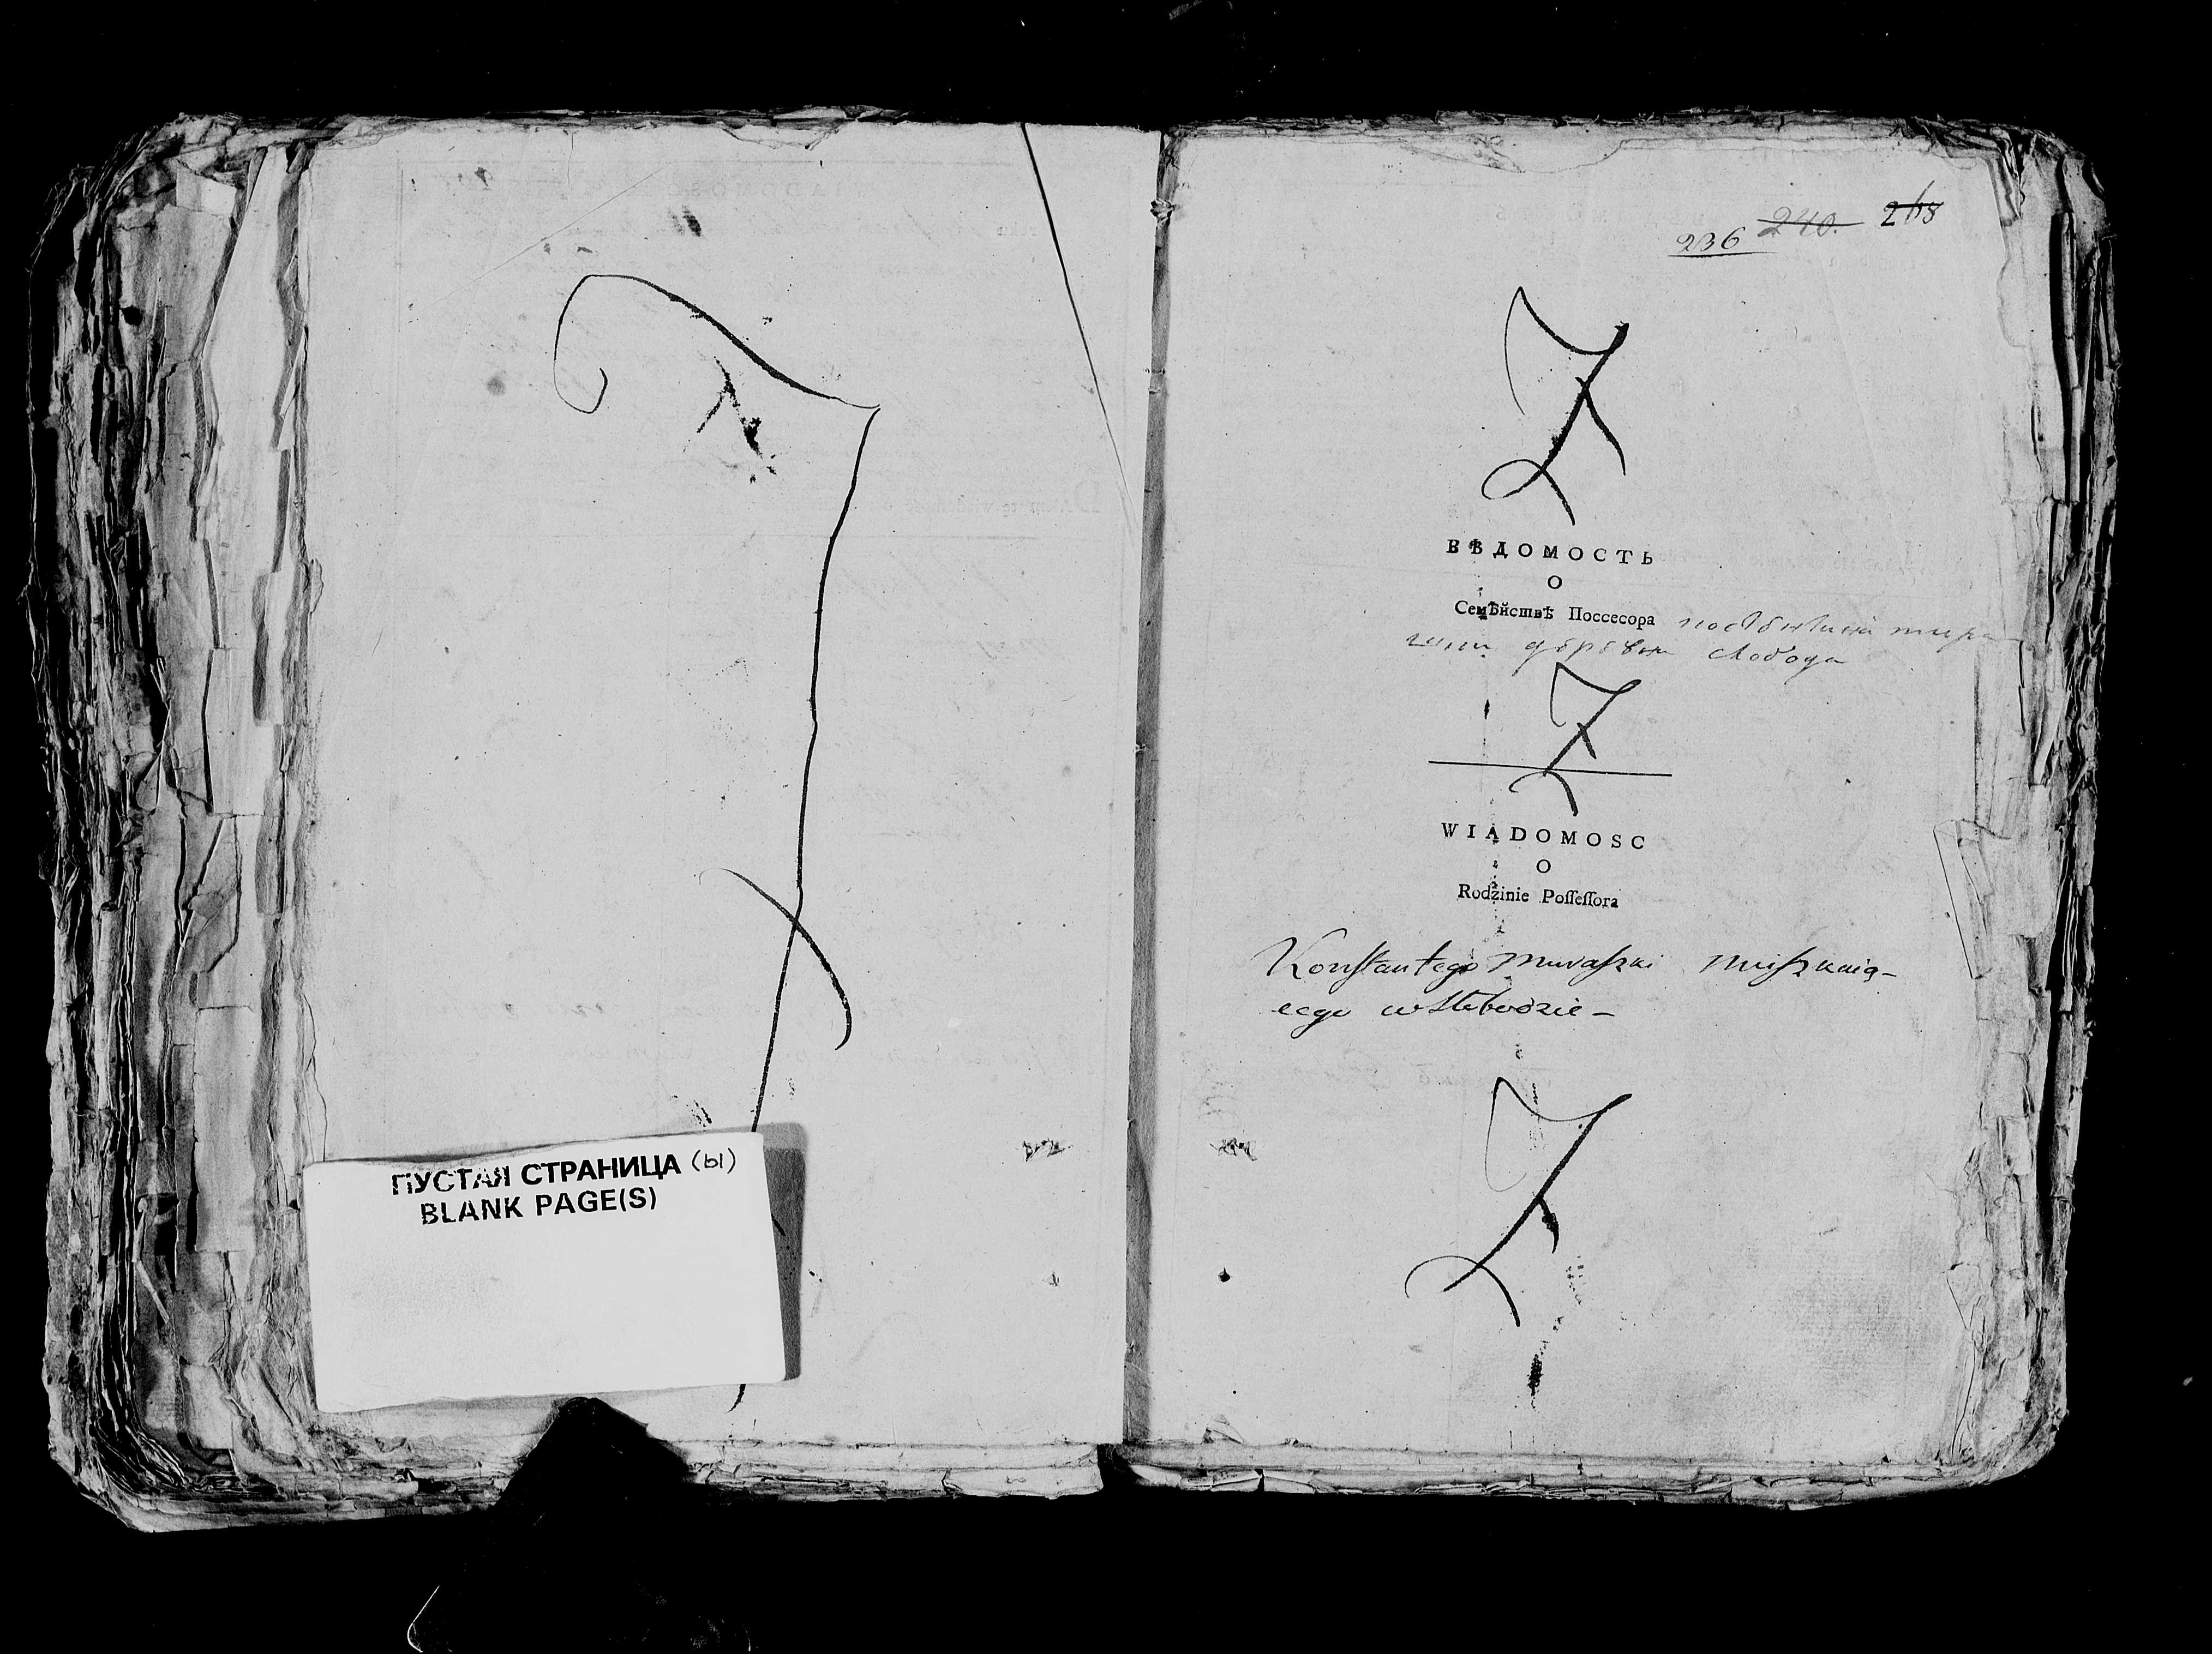 ПУСТАЯ СТРАНИЦА (ы)
BLANK PAGE(S)
236 240. 268
ВѢДОМОСТЬ
О
Семѣйствѣ Поссесора
деревни слобода
WIADOMOSC
O
Rodzinie Poſſeſſora
Konstantego Muraszki mieszkaią-
cego w Słobodzie -